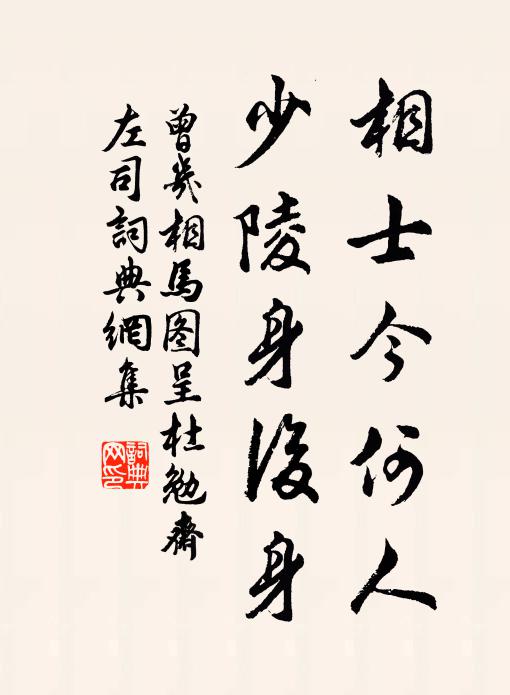 相士今何人
少陵身後身
曾幾相馬图呈杜勉齋
左司詞典網集
詞典
网印